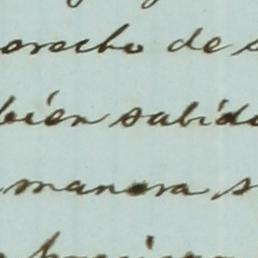 erecho de s
bién sabido
manera s